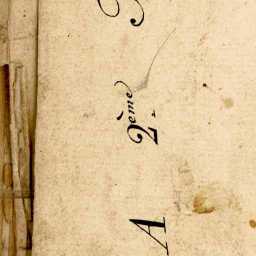 A 2ème